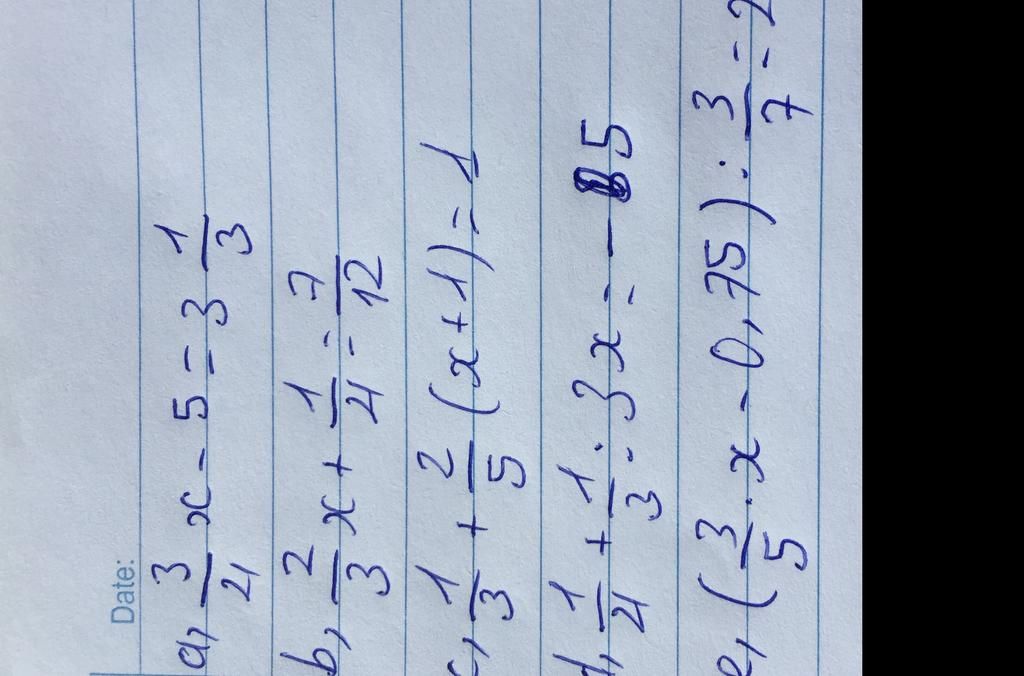 Date:
a, 3/4 x - 5 = 3 1/3
b, 2/3 x + 1/4 = 7/12
c, 1/3 + 2/5 (x + 1) = 1
d, 1/4 + 1/3 : 3x = - 5
e, (3/5 . x - 0,75) : 3/7 = 2